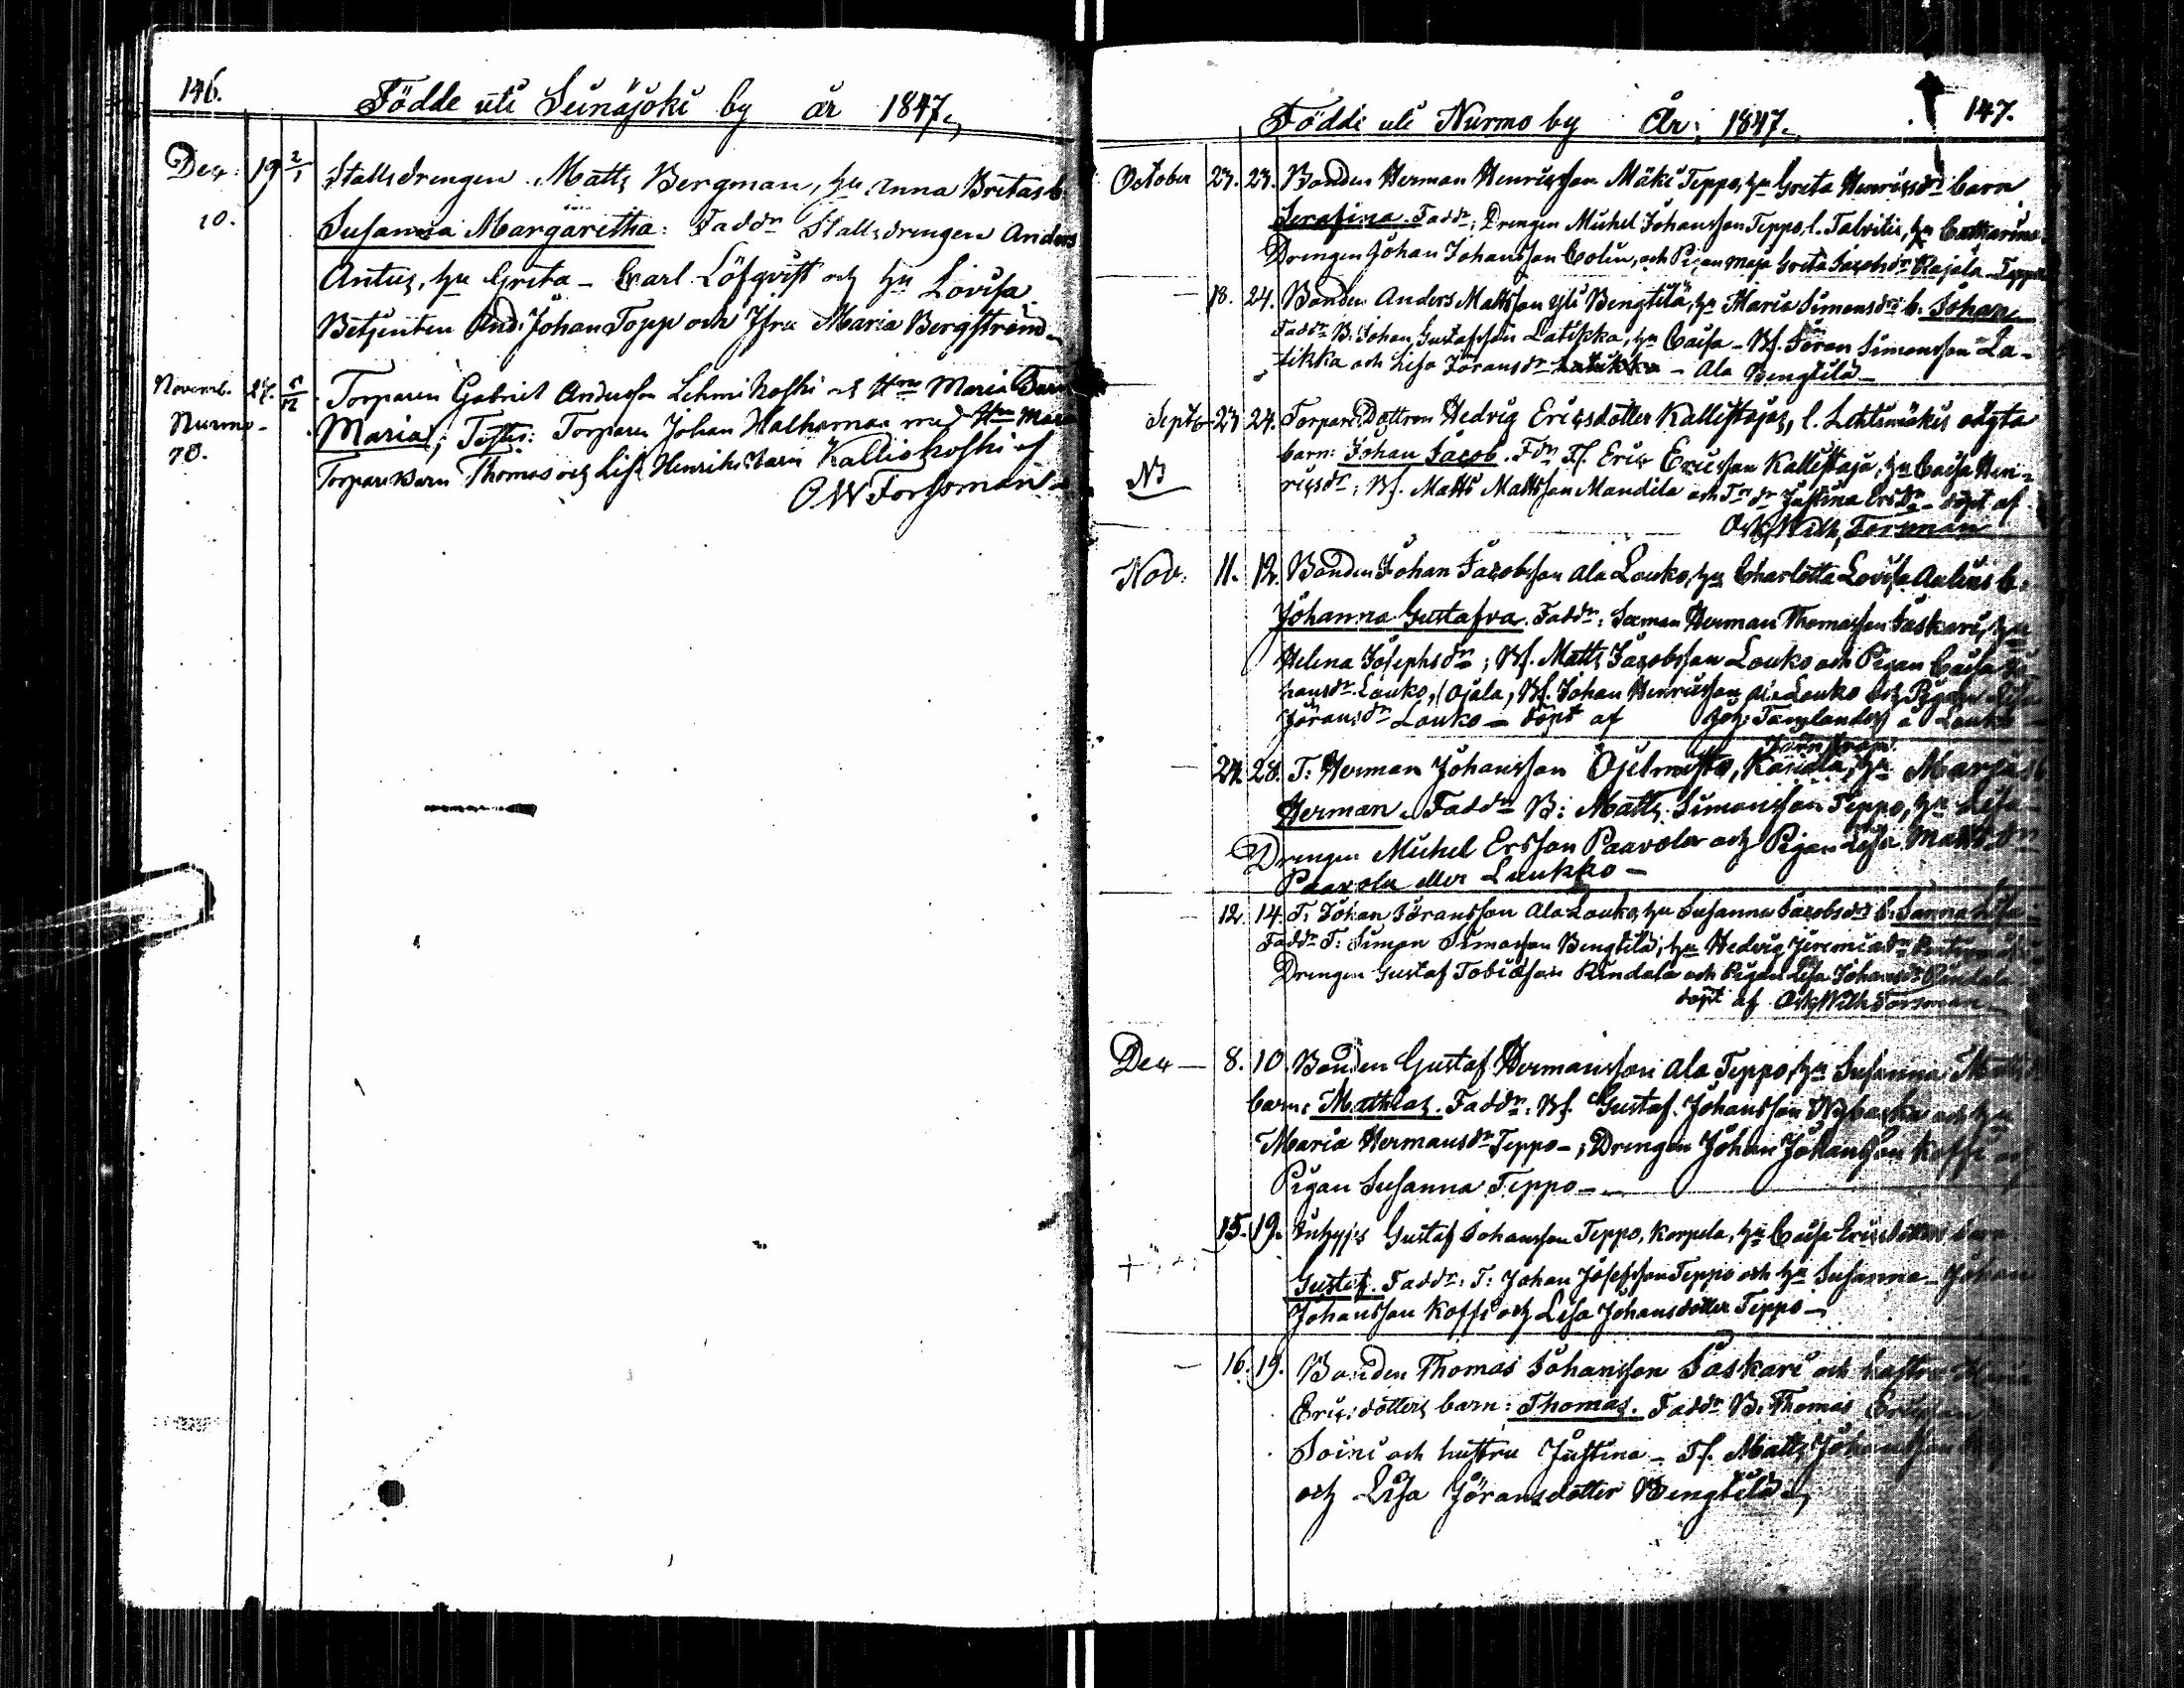 146.
Födde uti Seinäjoki by år 1847.
Dec: 19 2/1 Stallsdrengen Matts Bergman, hu Anna Britas b.
10. Susanna Margaretha: Faddr Stallsdrengen Anders
Antus, hu Greta - Carl Löfqvist och hu Lovisa
Betjenten And: Johan Topp och Jfru Maria Bergström
Novemb. 27. 5/12 Torparen Gabriel Andersson Lehmikoski och Hru Maria Barn
Nurmo - Maria; Testes: Torparen Johan Halharnaa med Hru Maria
70. Torpare Barn Thomas och Lisa Henriks barn Kalliokoski af
OW Forssman
147.
Födde uti Nurmo by År: 1847.
October 23. 23. Bonden Herman Henricsson Mäki Teppo, hu Greta Henricsdrs barn
Serafina. Faddr: Drengen Michel Johansson Teppo, l. Talvitie, hu Catharina
Drengen Johan Johansson Colin, och Pigan Maja Greta Jacobsdr Rajala - Teppo
- 18. 24. Bonden Anders Mattsson Yli Bengtilä, hu Maria Simonsdrs b. Johan
Faddr B. Johan Gustafsson Latikka, hu Caisa - Bf. Jöran Simonsson La-
tikka och Lisa Jöransdr Latikka - Ala Bengtilä -
Septb 23 24. Torpare Dottren Hedvig Ericsdotter Kallistajas, l. Lehtimäkis oägta
barn: Johan Jacob. Fdr Tf. Eric Ericsson Kallistaja, hu Caisa Hen-
NB ricsdr; Bf. Matts Mattsson Mandila och Tr dr Justina Ersdr - döpt af
Osk. Wilh. Forsman
Nov. 11. 12. Bonden Johan Jacobsson Ala Louko, hu Charlotta Lovisa Aulins b.
Johanna Gustafva. Faddr: Sexman Herman Thomasson Jaskari, hu
Helena Josephsdr; Bf. Matts Jacobsson Louko och Pigan Caisa Jo-
hansdr Louko, (Ojala, Bf. Johan Henricsson Ala Louko och Pigan Lisa
Jöransdr Louko - döpt af Joh: Tamlander å Louko
- 24. 28. T: Herman Johansson Öjelmäki, Kariala, hu Marias b
Herman. Faddr B: Matts Simonsson Teppo, hu Lisa -
Drengen Michel Ersson Paavola och Pigan Lisa Mattsdr
Paavola eller Luukko -
- 12. 14. T. Johan Jöransson Ala Louko, hu Susanna Jacobsdrs b: Sanna Lisa
Faddr T: Simon Simonsson Bengtilä, hu Hedvig Jeremiædr
Drengen Gustaf Tobiasson Rindala och Pigan Lisa Johansdr Rindala
döpt af Osk. Wilh. Forsman
Dec - 8. 10. Bonden Gustaf Hermansson Ala Teppo, hu Susanna Matts
barn: Mathias. Faddr: Bf. Gustaf Johansson Nybacka och hu
Maria Hermansdr Teppo -; Drengen Johan Johansson Kossi och
Pigan Susanna Teppo -
15. 19. Gustaf Johansson Teppo, Korpela, hu Caisa Ericsdotters barn
Gustaf. Faddr: T: Johan Josefsson Teppo och hu Susanna - Johan
Johansson Kossi och Lisa Johansdotter Teppo -
- 16. 19. Bonden Thomas Johansson Jaskari och hustru
Ericsdotters barn: Thomas. Faddr B: Thomas Ericsson
Soini och hustru Justina - Tf. Matts Johansson
och Lisa Jöransdotter Bengtilä -